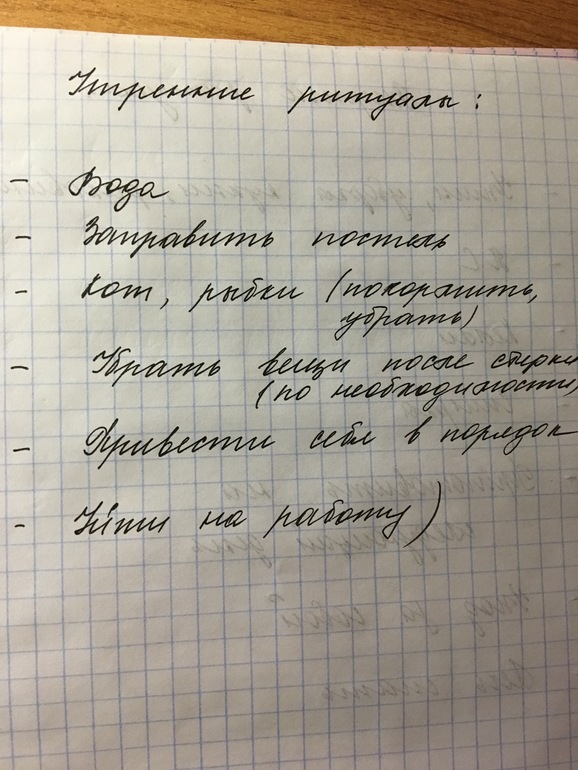 Утренние ритуалы:
- Вода
- Заправить постель
- Кот, рыбки (покормить,
убрать)
- Убрать вещи после стирки
(по необходимости)
- Привести себя в порядок
- Уйти на работу)